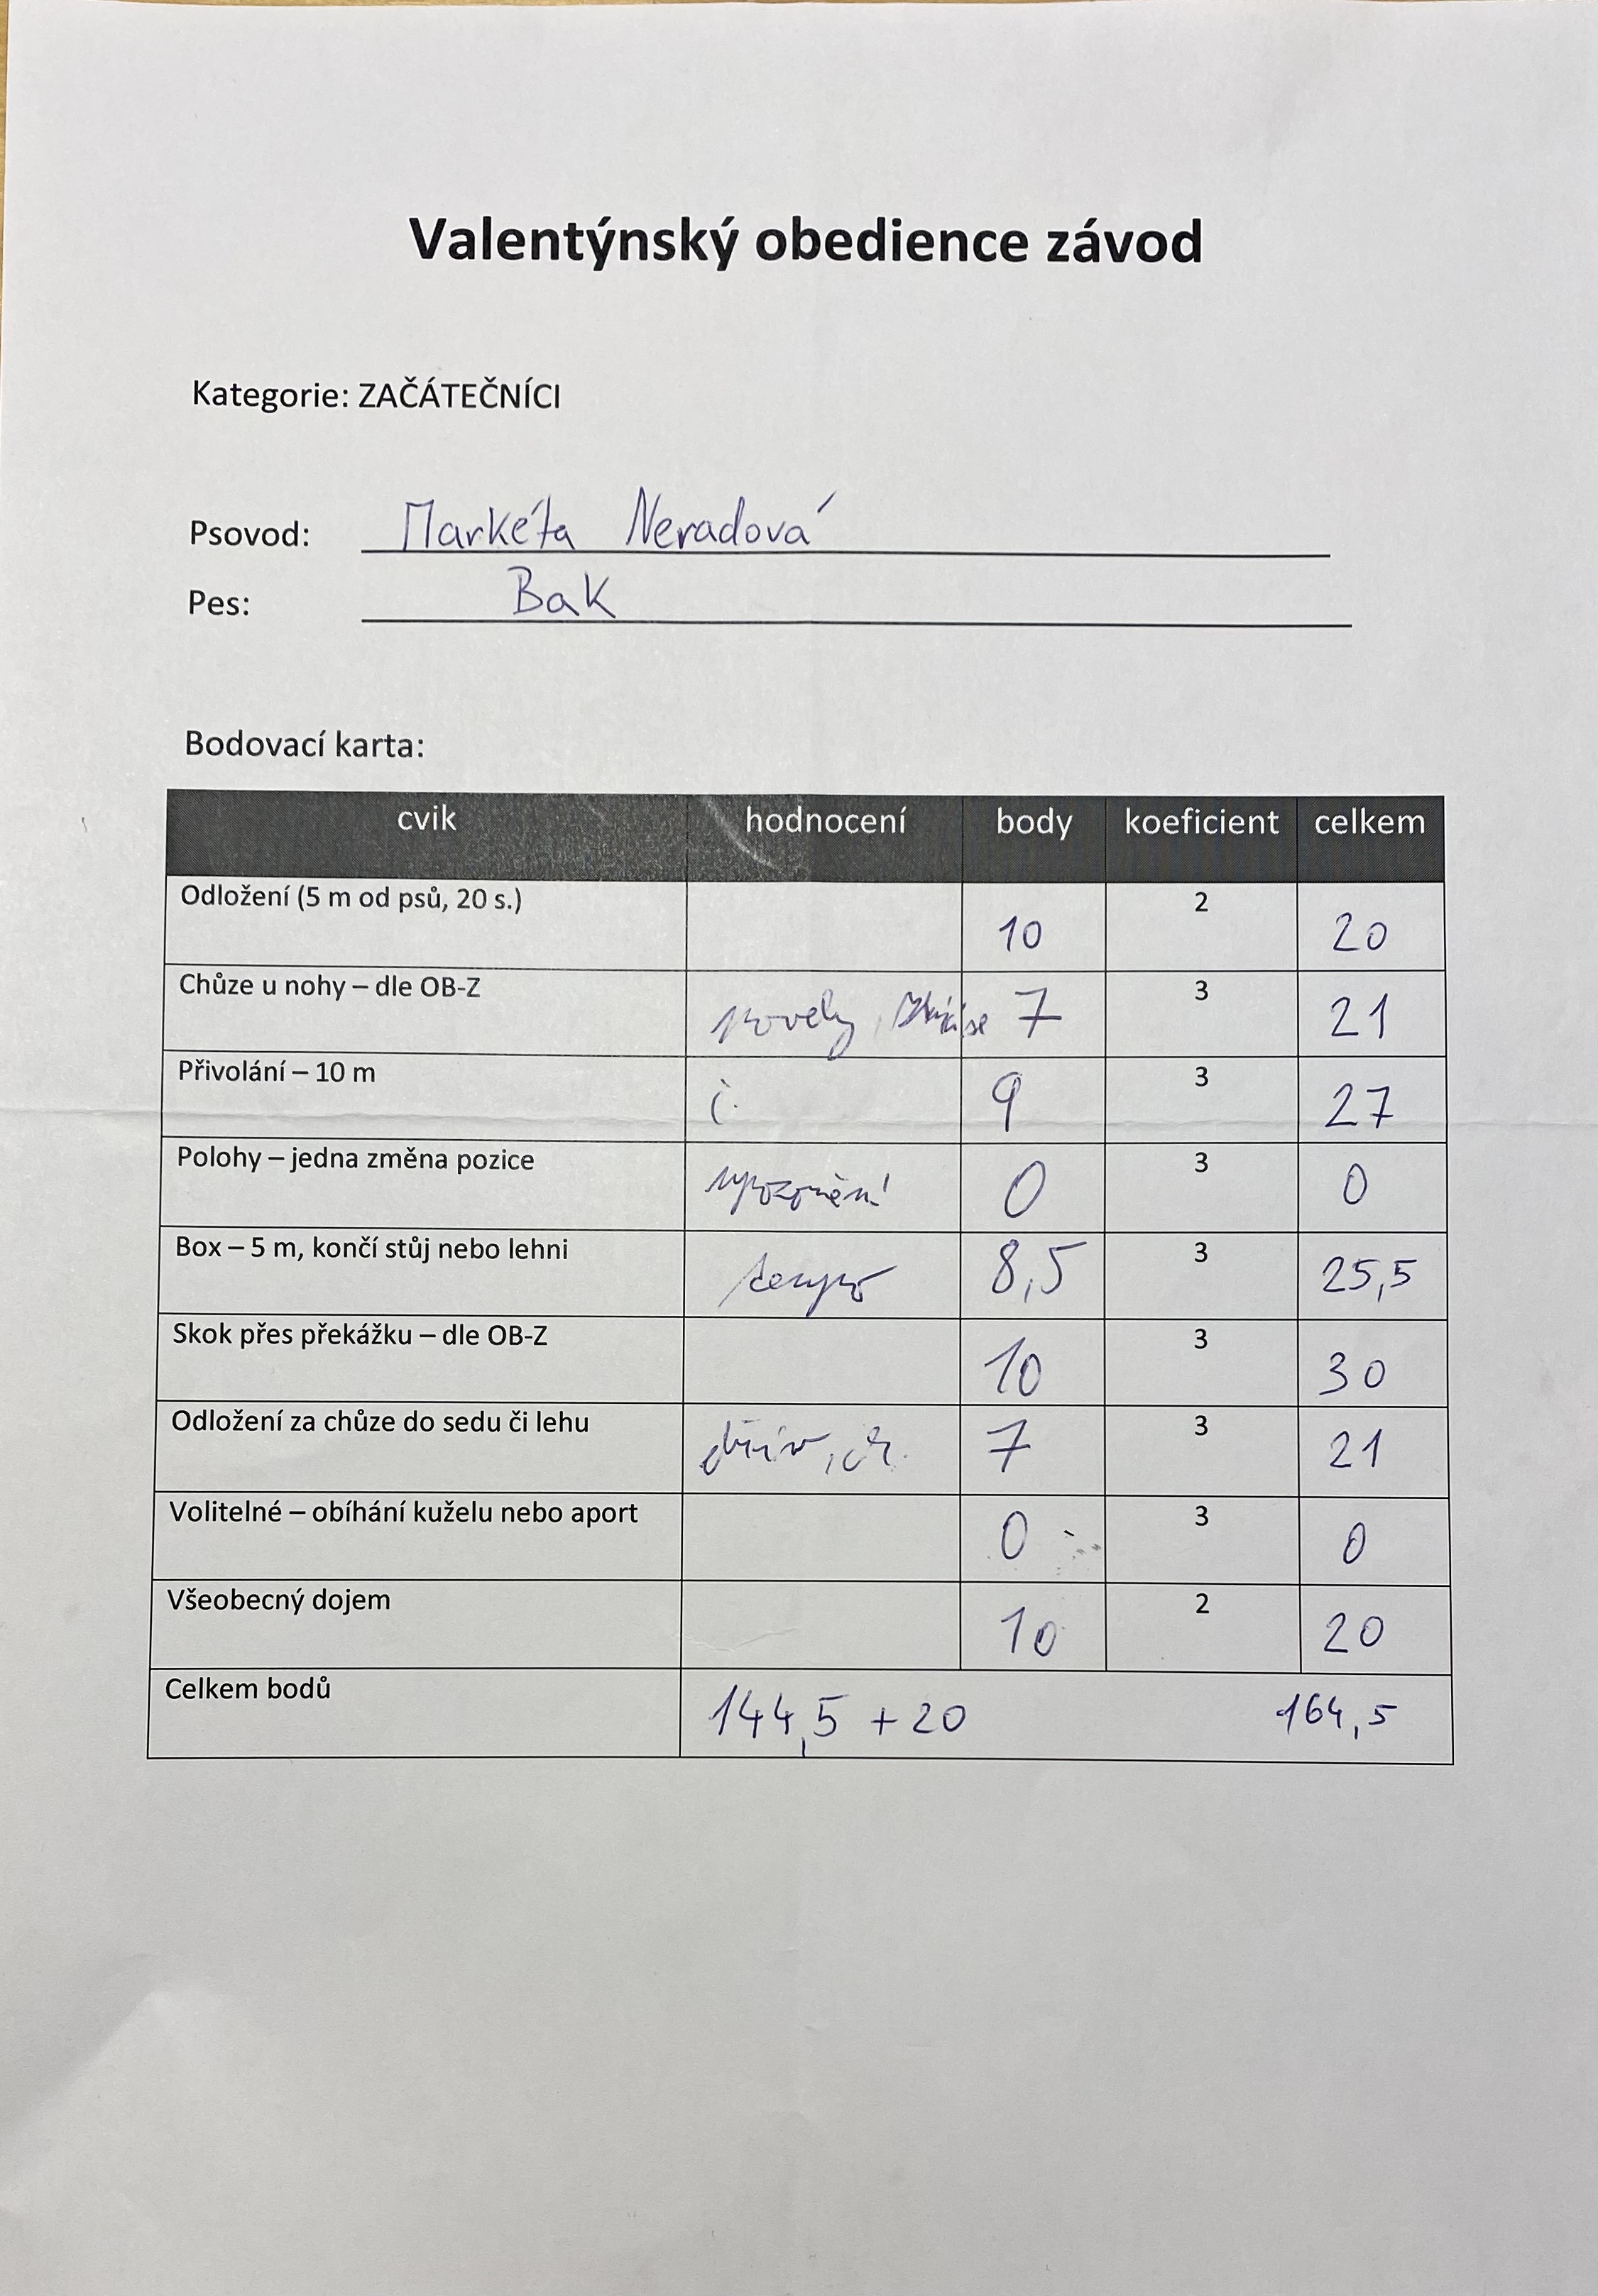 Valentýnský obedience závod
Kategorie: ZAČÁTEČNÍCI
Psovod: Markéta Neradová
Pes: Bak
Bodovací karta:
cvik hodnocení body koeficient celkem
Odložení (5 m od psů, 20 s.) 10 2 20
Chůze u nohy – dle OB-Z povely, 7 3 21
Přivolání – 10 m 9 3 27
Polohy – jedna změna pozice upozornění 0 3 0
Box – 5 m, končí stůj nebo lehni tempo 8,5 3 25,5
Skok přes překážku – dle OB-Z 10 3 30
Odložení za chůze do sedu či lehu 7 3 21
Volitelné – obíhání kuželu nebo aport 0 3 0
Všeobecný dojem 10 2 20
Celkem bodů 144,5 + 20 164,5